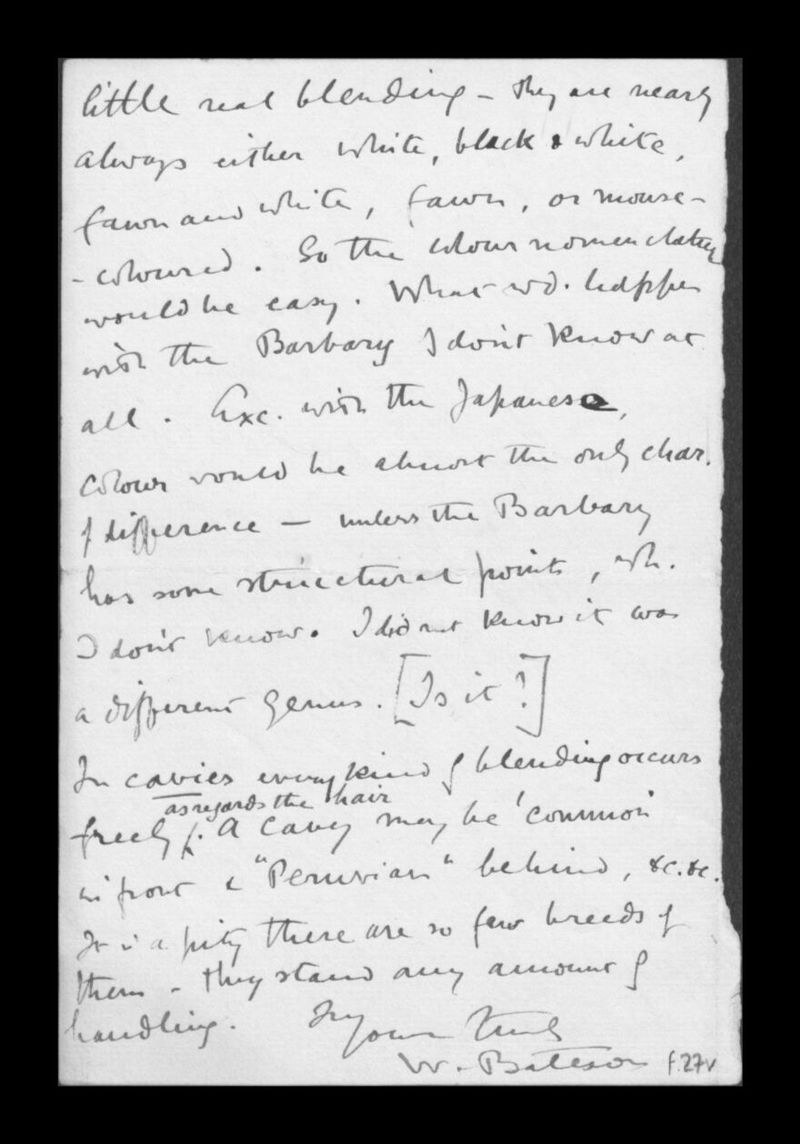 little real blending - they are nearly
always either white, black & white,
fawn and white, fawn, or mouse-
-coloured. So the colour nomenclature
would be easy. What wd. happen
with the Barbary I don't know at
all. Exc. with the Japanese,
colour would be almost the only char.
of difference — unless the Barbary
has some structural points, wh.
I don't know. I did not know it was
a different genus. [Is it?]
In cavies every kind of blending occurs
as regards the hair
freely. A cavy may be 'common'
in front & "Peruvian" behind, &c. &c.
It is a pity there are so few breeds of
them - they stand any amount of
handling.
Yours truly
W. Bateson
f.27v